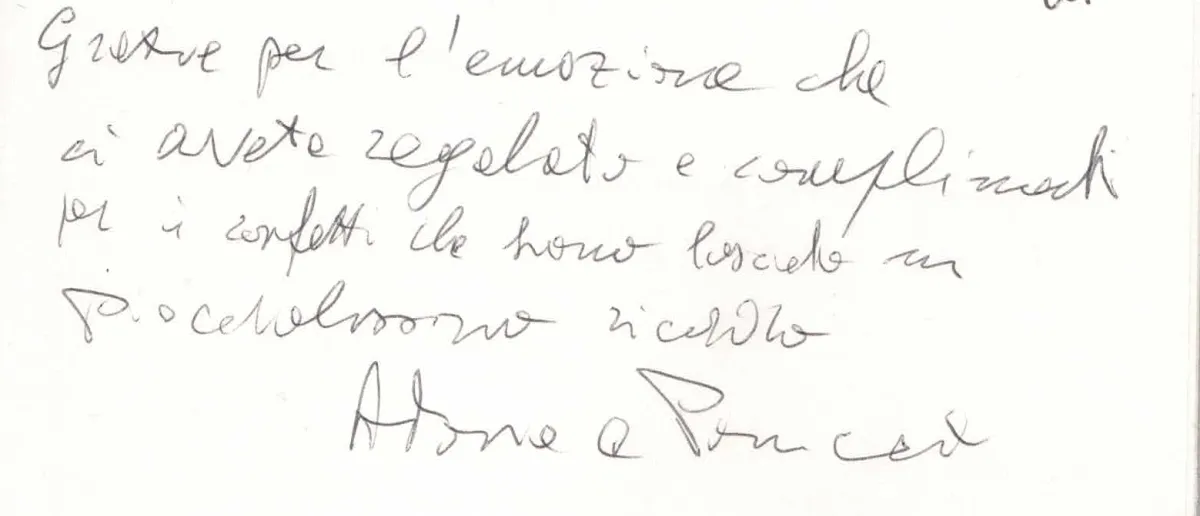 Grazie per l'emozione che
ci avete regalato e complimenti
per i confetti che hanno lasciato un
piacevolissimo ricordo